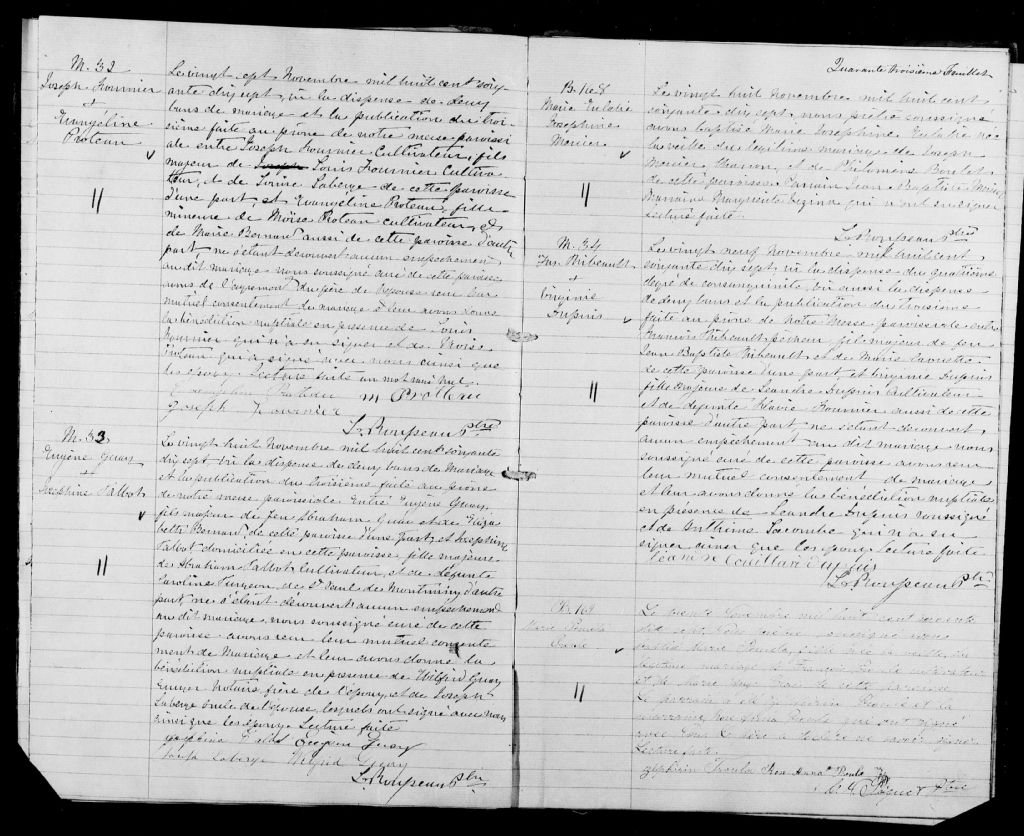 M. 32
Joseph Fournier
+
Evangeline
Proteau
Le vingt sept Novembre mil huit cent soix-
ante dix sept, vu la dispense de deux
bans de mariage et la publication du troi-
sième faite au prône de notre messe paroissi-
ale entre Joseph Fournier Cultivateur, fils
majeur de Joseph Louis Fournier Cultiva-
teur, et de Soline Laberge de cette paroisse
d'une part et Evangeline Proteau, fille
mineure de Moïse Proteau cultivateur, et
de Marie Bernard aussi de cette paroisse d'autre
part, ne s'étant découvert aucun empêchement
au dit mariage nous soussigné curé de cette paroisse
avons de l'agrément du père de l'épouse reçu leur
mutuel consentement de mariage et leur avons donné
la bénédiction nuptiale en présence de Louis
Fournier qui n'a su signer et de Moïse
Proteau qui a signé avec nous ainsi que
les époux. Lecture faite un mot rayé nul.
Evangeline Proteau M Proteau
Joseph Fournier
L. Roupeau Ptre
M. 33
Eugène Guay
+
Josephine Talbot
Le vingt huit Novembre mil huit cent soixante
dix sept vu la dispense de deux bans de Mariage
et la publication du troisième faite au prône
de notre messe paroissiale Entre Eugène Guay,
fils majeur de feu Abraham Guay et de Eliza-
beth Bernard de cette paroisse d'une part, et Josephine
Talbot domiciliée en cette paroisse, fille majeure
de Abraham Talbot Cultivateur, et de défunte
Caroline Turgeon, de St Paul de Montminy d'autre
part, ne s'étant découvert aucun empêchement
au dit mariage, nous soussigné curé de cette
paroisse avons reçu leur mutuel consente-
ment de Mariage et leur avons donné la
bénédiction nuptiale en présence de Wilfrid Guay
Ecuyer Notaire, frère de l'époux, et de Joseph
Laberge ami de l'épouse, lesquels ont signé avec nous
ainsi que les époux Lecture faite
Josephine Talbot Eugène Guay
Joseph Laberge Wilfrid Guay
L. Roupeau Ptre
Quarante troisième Feuillet
B. 168
Marie Eulalie
Josephine
Mercier
Le vingt huit Novembre mil huit cent
soixante dix sept, nous prêtre soussigné
avons baptisé Marie Josephine Eulalie née
la veille du légitime mariage de Joseph
Mercier, et de Philomène Boulet
de cette paroisse. Parrain Jean Baptiste Morin,
Marraine Marguerite qui n'ont su signer
Lecture faite.
L. Roupeau Ptre
M. 34
Thibeault
+
Virginie
Dupuis
Le vingt neuf Novembre mil huit cent
soixante dix sept, vu la dispense du quatrième
degré de consanguinité, vu aussi la dispense
de deux bans et la publication du troisième
faite au prône de Notre Messe paroissiale entre
Thibeault pêcheur, fils majeur de feu
Jean Baptiste Thibeault et de Marie
de cette paroisse d'une part et Virginie Dupuis
fille majeure de Leandre Dupuis Cultivateur
et de défunte Fournier aussi de cette
paroisse d'autre part, ne s'étant découvert
aucun empêchement au dit mariage nous
soussigné curé de cette paroisse avons reçu
leur mutuel consentement de mariage
et leur avons donné la bénédiction nuptiale
en présence de Leandre Dupuis soussigné
et de Anthime Lacombe qui n'a su
signer ainsi que les époux, Lecture faite
Dupuis
L. Roupeau Ptre
B. 169
Marie
Le trente Novembre mil huit cent soixante
dix sept, nous prêtre soussigné avons
baptisé Marie née la veille, du
légitime mariage de
et de Marie de cette paroisse
Le parrain a été et la
marraine qui ont signé
avec nous. Le père a déclaré ne savoir signer
Lecture faite.
Rose Anna
Ptre